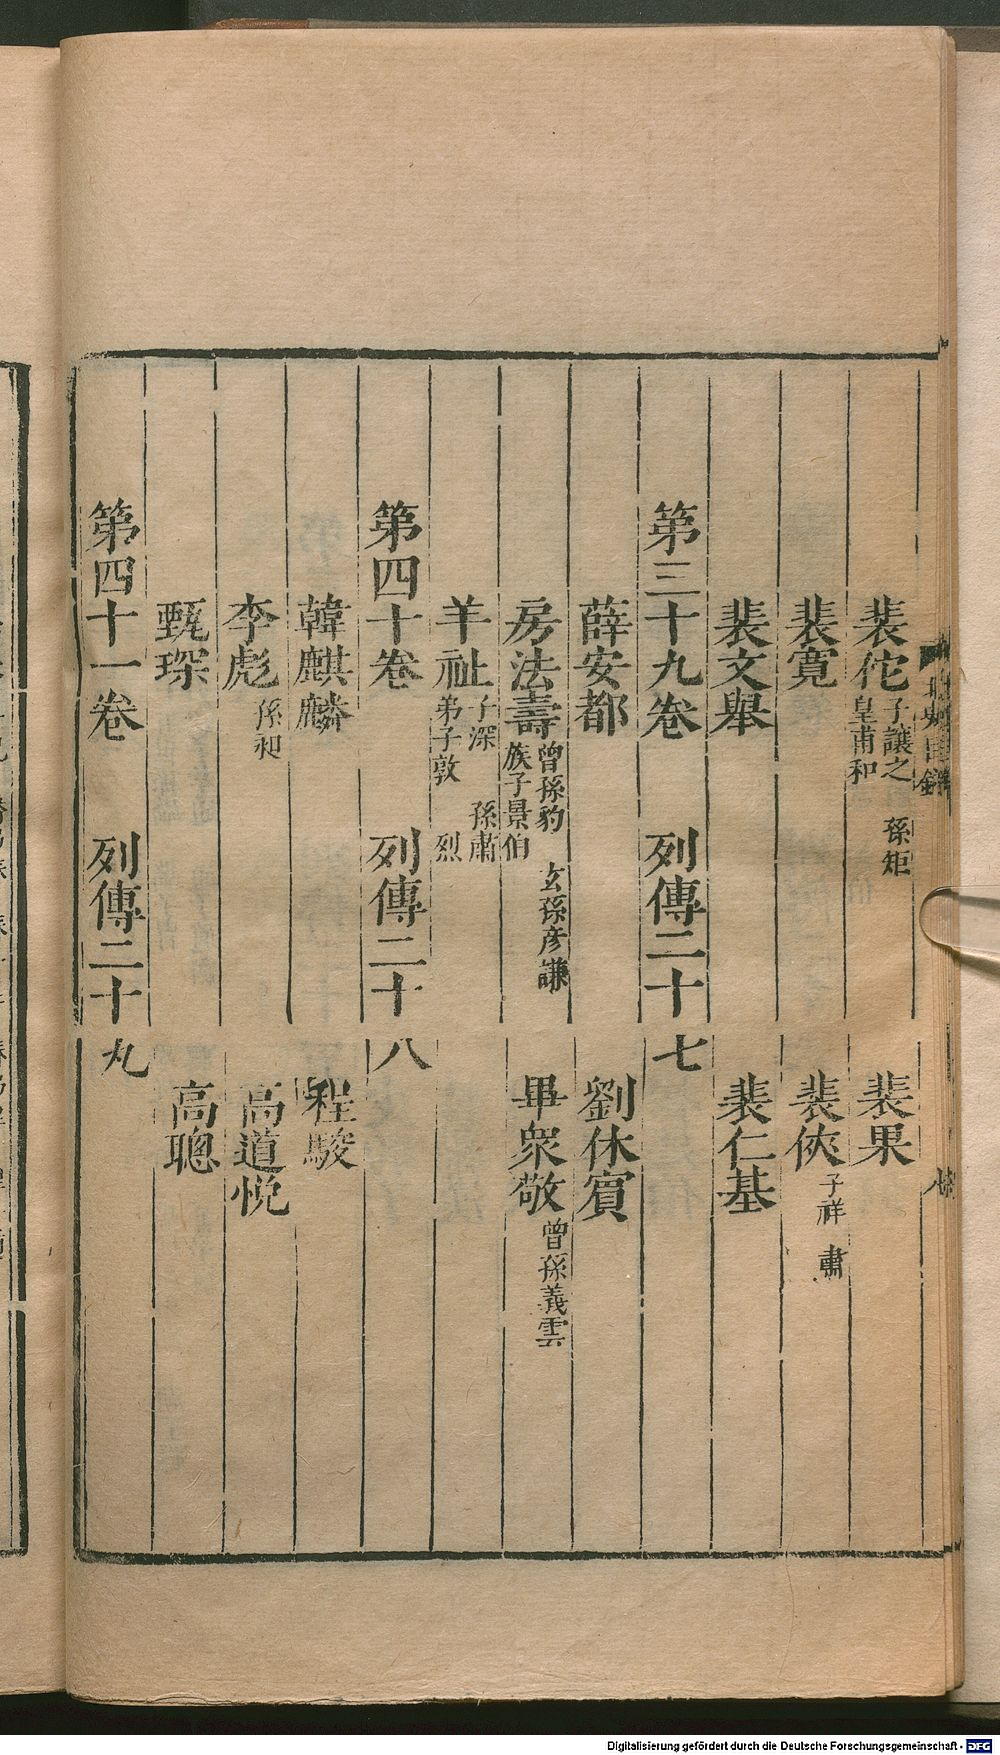 裴佗子讓之 孫矩 皇甫和 裴果
裴寬 裴俠子祥 肅
裴文舉 裴仁基
第三十九卷 列傳二十七
薛安都 劉休賓
房法壽曾孫豹 玄孫彦謙 族子景伯 畢衆敬曾孫義雲
羊祉子深 孫肅 弟子敦 烈
第四十卷 列傳二十八
韓麒麟 程駿
李彪孫昶 高道悅
甄琛 高聰
第四十一卷 列傳二十九
Digitalisierung gefördert durch die Deutsche Forschungsgemeinschaft - DFG